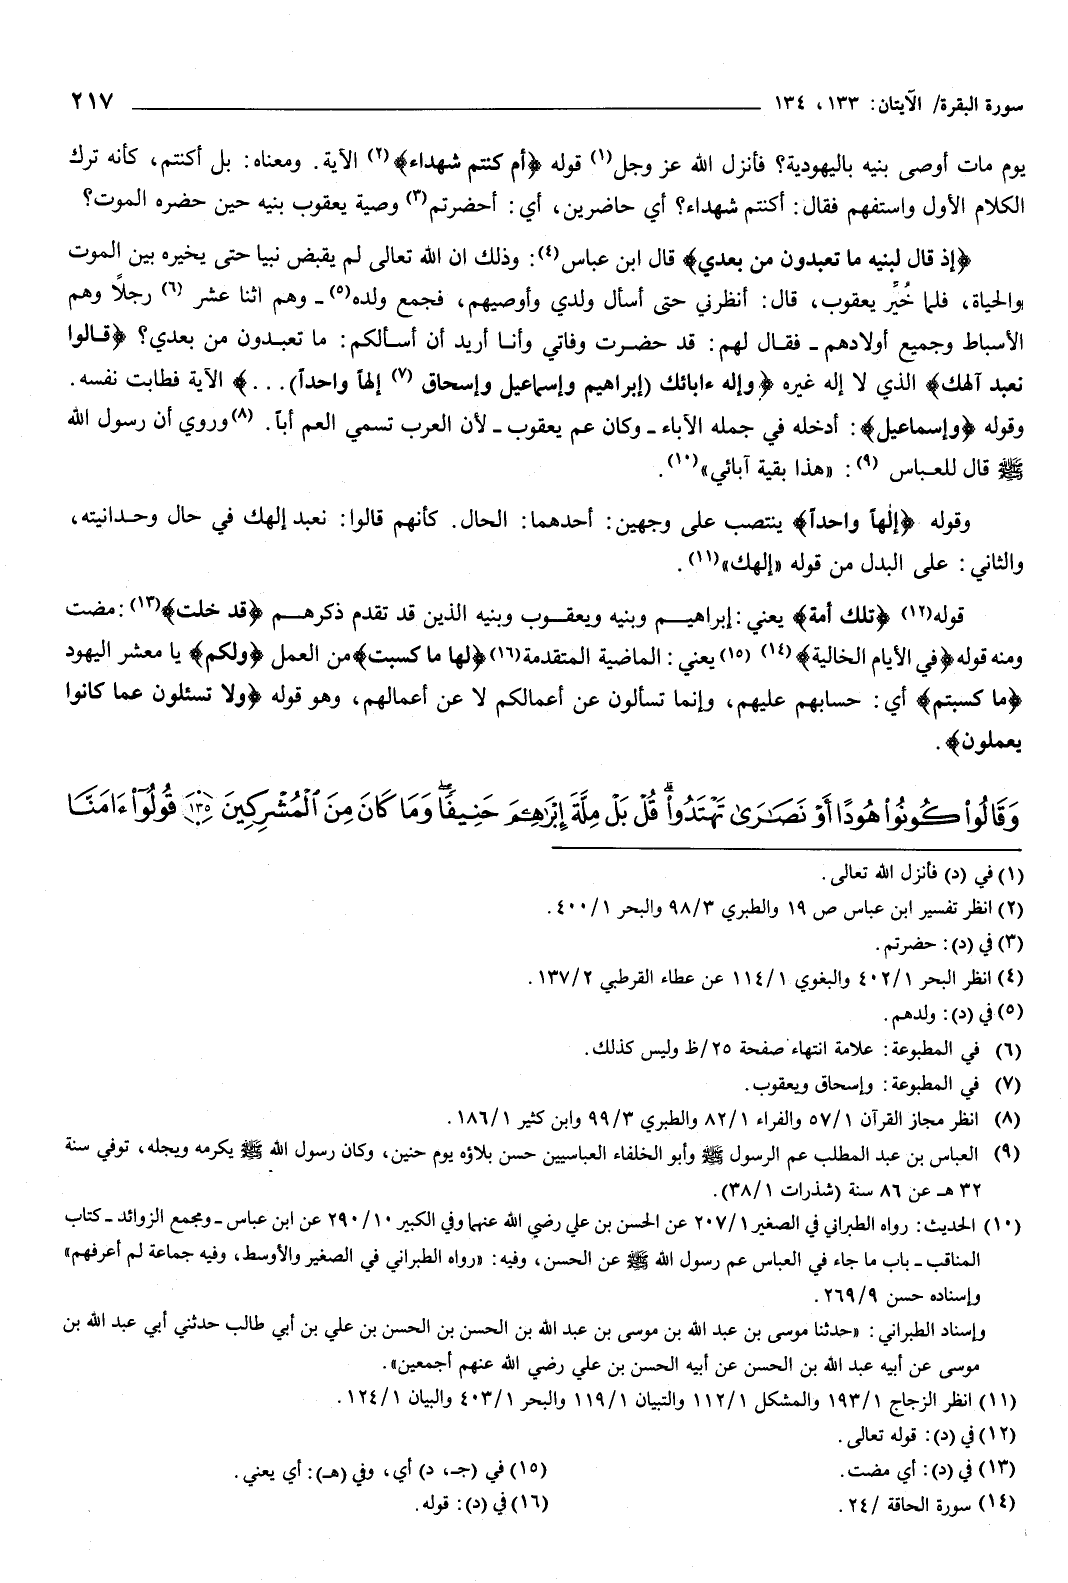 سورة البقرة/ الآيتان: ١٣٣، ١٣٤ ٢١٧
يوم مات أوصى بنيه باليهودية؟ فأنزل الله عز وجل(١) قوله ﴿أم كنتم شهداء﴾(٢) الآية. ومعناه: بل أكنتم، كأنه ترك
الكلام الأول واستفهم فقال: أكنتم شهداء؟ أي حاضرين، أي: أحضرتم(٣) وصية يعقوب بنيه حين حضره الموت؟
﴿إذ قال لبنيه ما تعبدون من بعدي﴾ قال ابن عباس(٤): وذلك ان الله تعالى لم يقبض نبيا حتى يخيره بين الموت
والحياة، فلما خُيِّر يعقوب، قال: أنظرني حتى أسأل ولدي وأوصيهم، فجمع ولده(٥) ـ وهم اثنا عشر (٦) رجلاً وهم
الأسباط وجميع أولادهم ـ فقال لهم: قد حضرت وفاتي وأنا أريد أن أسألكم: ما تعبدون من بعدي؟ ﴿قالوا
نعبد آلهك﴾ الذي لا إله غيره ﴿وإله ءابائك (إبراهيم وإسماعيل وإسحاق (٧) إلهاً واحداً)...﴾ الآية فطابت نفسه.
وقوله ﴿وإسماعيل﴾: أدخله في جمله الأباء ـ وكان عم يعقوب ـ لأن العرب تسمي العم أباً. (٨)وروي أن رسول الله
ﷺ قال للعباس (٩): «هذا بقية آبائي»(١٠).
وقوله ﴿إلٰهاً واحداً﴾ ينتصب على وجهين: أحدهما: الحال. كأنهم قالوا: نعبد إلهك في حال وحدانيته،
والثاني: على البدل من قوله «إلهك»(١١).
قوله(١٢) ﴿تلك أمة﴾ يعني: إبراهيم وبنيه ويعقوب وبنيه الذين قد تقدم ذكرهم ﴿قد خلت﴾(١٣): مضت
ومنه قوله ﴿في الأيام الخالية﴾(١٤) (١٥) يعني: الماضية المتقدمة(١٦) ﴿لها ما كسبت﴾ من العمل ﴿ولكم﴾ يا معشر اليهود
﴿ما كسبتم﴾ أي: حسابهم عليهم، وإنما تسألون عن أعمالكم لا عن أعمالهم، وهو قوله ﴿ولا تسئلون عما كانوا
يعملون﴾.
وَقَالُوا۟ كُونُوا۟ هُودًا أَوْ نَصَـٰرَىٰ تَهْتَدُوا۟ ۗ قُلْ بَلْ مِلَّةَ إِبْرَٰهِـۧمَ حَنِيفًا ۖ وَمَا كَانَ مِنَ ٱلْمُشْرِكِينَ ﴿١٣٥﴾ قُولُوٓا۟ ءَامَنَّا
(١) في (د) فأنزل الله تعالى.
(٢) انظر تفسير ابن عباس ص ١٩ والطبري ٩٨/٣ والبحر ٤٠٠/١.
(٣) في (د): حضرتم.
(٤) انظر البحر ٤٠٢/١ والبغوي ١١٤/١ عن عطاء القرطبي ١٣٧/٢.
(٥) في (د): ولدهم.
(٦) في المطبوعة: علامة انتهاء صفحة ٢٥/ظ وليس كذلك.
(٧) في المطبوعة: وإسحاق ويعقوب.
(٨) انظر مجاز القرآن ٥٧/١ والفراء ٨٢/١ والطبري ٩٩/٣ وابن كثير ١٨٦/١.
(٩) العباس بن عبد المطلب عم الرسول ﷺ وأبو الخلفاء العباسيين حسن بلاؤه يوم حنين، وكان رسول الله ﷺ يكرمه ويجله، توفي سنة
٣٢ هـ عن ٨٦ سنة (شذرات ٣٨/١).
(١٠) الحديث: رواه الطبراني في الصغير ٢٠٧/١ عن الحسن بن علي رضي الله عنهما وفي الكبير ٢٩٠/١٠ عن ابن عباس ـ ومجمع الزوائد ـ كتاب
المناقب ـ باب ما جاء في العباس عم رسول الله ﷺ عن الحسن، وفيه: «رواه الطبراني في الصغير والأوسط، وفيه جماعة لم أعرفهم»
وإسناده حسن ٢٦٩/٩.
وإسناد الطبراني: «حدثنا موسى بن عبد الله بن موسى بن عبد الله بن الحسن بن الحسن بن علي بن أبي طالب حدثني أبي عبد الله بن
موسى عن أبيه عبد الله بن الحسن عن أبيه الحسن بن علي رضي الله عنهم أجمعين».
(١١) انظر الزجاج ١٩٣/١ والمشكل ١١٢/١ والتبيان ١١٩/١ والبحر ٤٠٣/١ والبيان ١٢٤/١.
(١٢) في (د): قوله تعالى.
(١٣) في (د): أي مضت.
(١٤) سورة الحاقة /٢٤.
(١٥) في (جـ، د) أي، وفي (هـ): أي يعني.
(١٦) في (د): قوله.